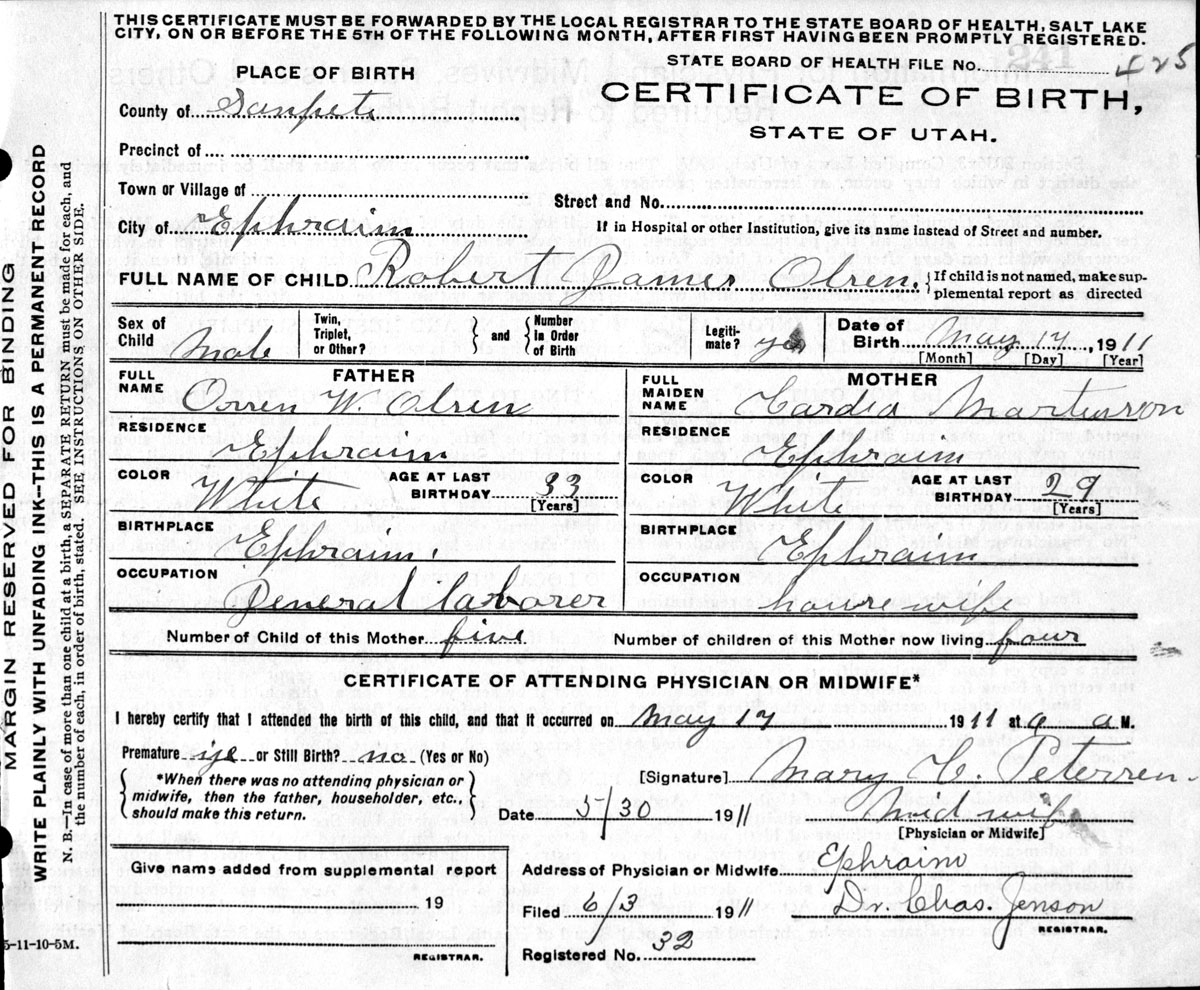 THIS CERTIFICATE MUST BE FORWARDED BY THE LOCAL REGISTRAR TO THE STATE BOARD OF HEALTH, SALT LAKE
CITY, ON OR BEFORE THE 5TH OF THE FOLLOWING MONTH, AFTER FIRST HAVING BEEN PROMPTLY REGISTERED.
PLACE OF BIRTH
STATE BOARD OF HEALTH FILE NO. 241 425
County of Sanpete
CERTIFICATE OF BIRTH,
STATE OF UTAH.
Precinct of
Town or Village of
Street and No.
City of Ephraim
If in Hospital or other Institution, give its name instead of Street and number.
FULL NAME OF CHILD Robert James Olsen. If child is not named, make sup-
plemental report as directed
Sex of Child Male Twin, Triplet, or Other? and Number In Order of Birth Legiti-mate? yes Date of Birth May 17, 1911
[Month] [Day] [Year]
FATHER
FULL NAME Orren W. Olsen
RESIDENCE Ephraim
COLOR White AGE AT LAST BIRTHDAY 33 [Years]
BIRTHPLACE Ephraim.
OCCUPATION General laborer
MOTHER
FULL MAIDEN NAME Martenson
RESIDENCE Ephraim
COLOR White AGE AT LAST BIRTHDAY 29 [Years]
BIRTHPLACE Ephraim
OCCUPATION house wife
Number of Child of this Mother five Number of children of this Mother now living four
CERTIFICATE OF ATTENDING PHYSICIAN OR MIDWIFE*
I hereby certify that I attended the birth of this child, and that it occurred on May 17 1911 at 9 a M.
Premature or Still Birth? no (Yes or No)
*When there was no attending physician or
midwife, then the father, householder, etc.,
should make this return.
[Signature] Mary C. Petersen
Date 5/30 1911 Mid wife
[Physician or Midwife]
Give name added from supplemental report
19
REGISTRAR.
Address of Physician or Midwife Ephraim
Filed 6/3 1911 Dr. Chas. Jenson
REGISTRAR.
Registered No. 32
5-11-10-5M.
MARGIN RESERVED FOR BINDING
WRITE PLAINLY WITH UNFADING INK--THIS IS A PERMANENT RECORD
N. B.--In case of more than one child at a birth, a SEPARATE RETURN must be made for each, and
the number of each, in order of birth, stated. SEE INSTRUCTIONS ON OTHER SIDE.